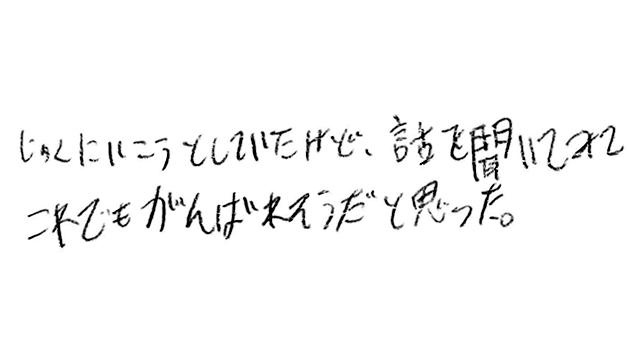 じゅくにいこうとしていたけど、話を聞いてみて
これでもがんばれそうだと思った。